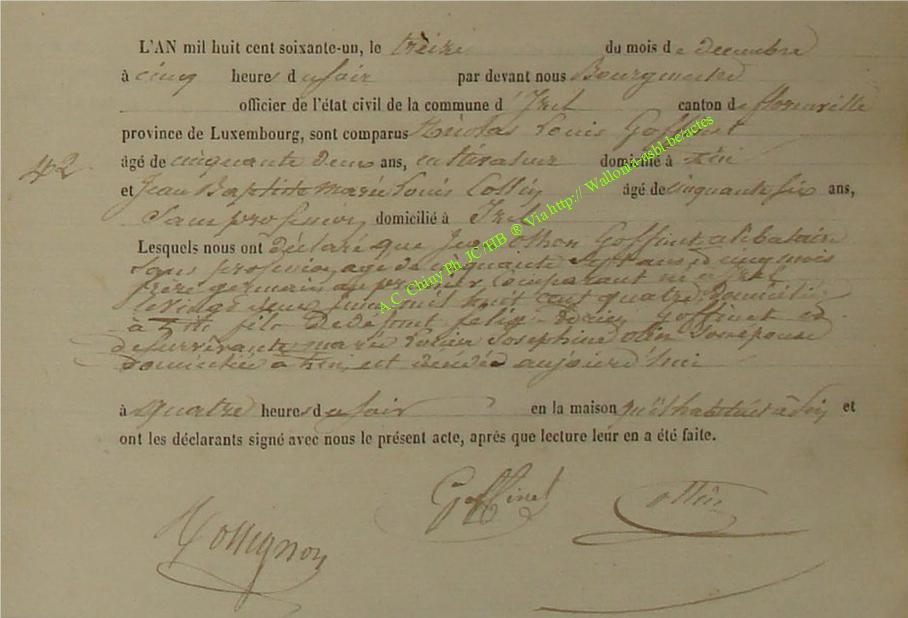 L'AN mil huit cent soixante-un, le treize du mois de decembre
à cinq heures du soir par devant nous Bourgmestre
officier de l'état civil de la commune d'Izel canton de florenville
province de Luxembourg, sont comparus Nicolas Louis Goffinet
42
âgé de cinquante deux ans, cultivateur domicilié à
et Jean Baptiste marie Louis Collin âgé de cinquante six ans,
Sans profession domicilié à Izel
Lesquels nous ont déclaré que Jean Goffinet célibataire
Sans profession, agé de cinquante sept ans et cinq mois
frère germain du premier comparant né à Izel
le vingt deux juin mil huit cent quatre, domicilié
à fils de défunt félix Goffinet et
de survivante marie Josephine son épouse
domiciliée à est décédé aujourd'hui
à quatre heures du soir en la maison qu'il habitait à et
ont les déclarants signé avec nous le présent acte, après que lecture leur en a été faite.
Goffinet Collin
Rossignon
A.C. Chiny Ph. JC/HB ® Via http:// Wallonia-asbl-be:actes